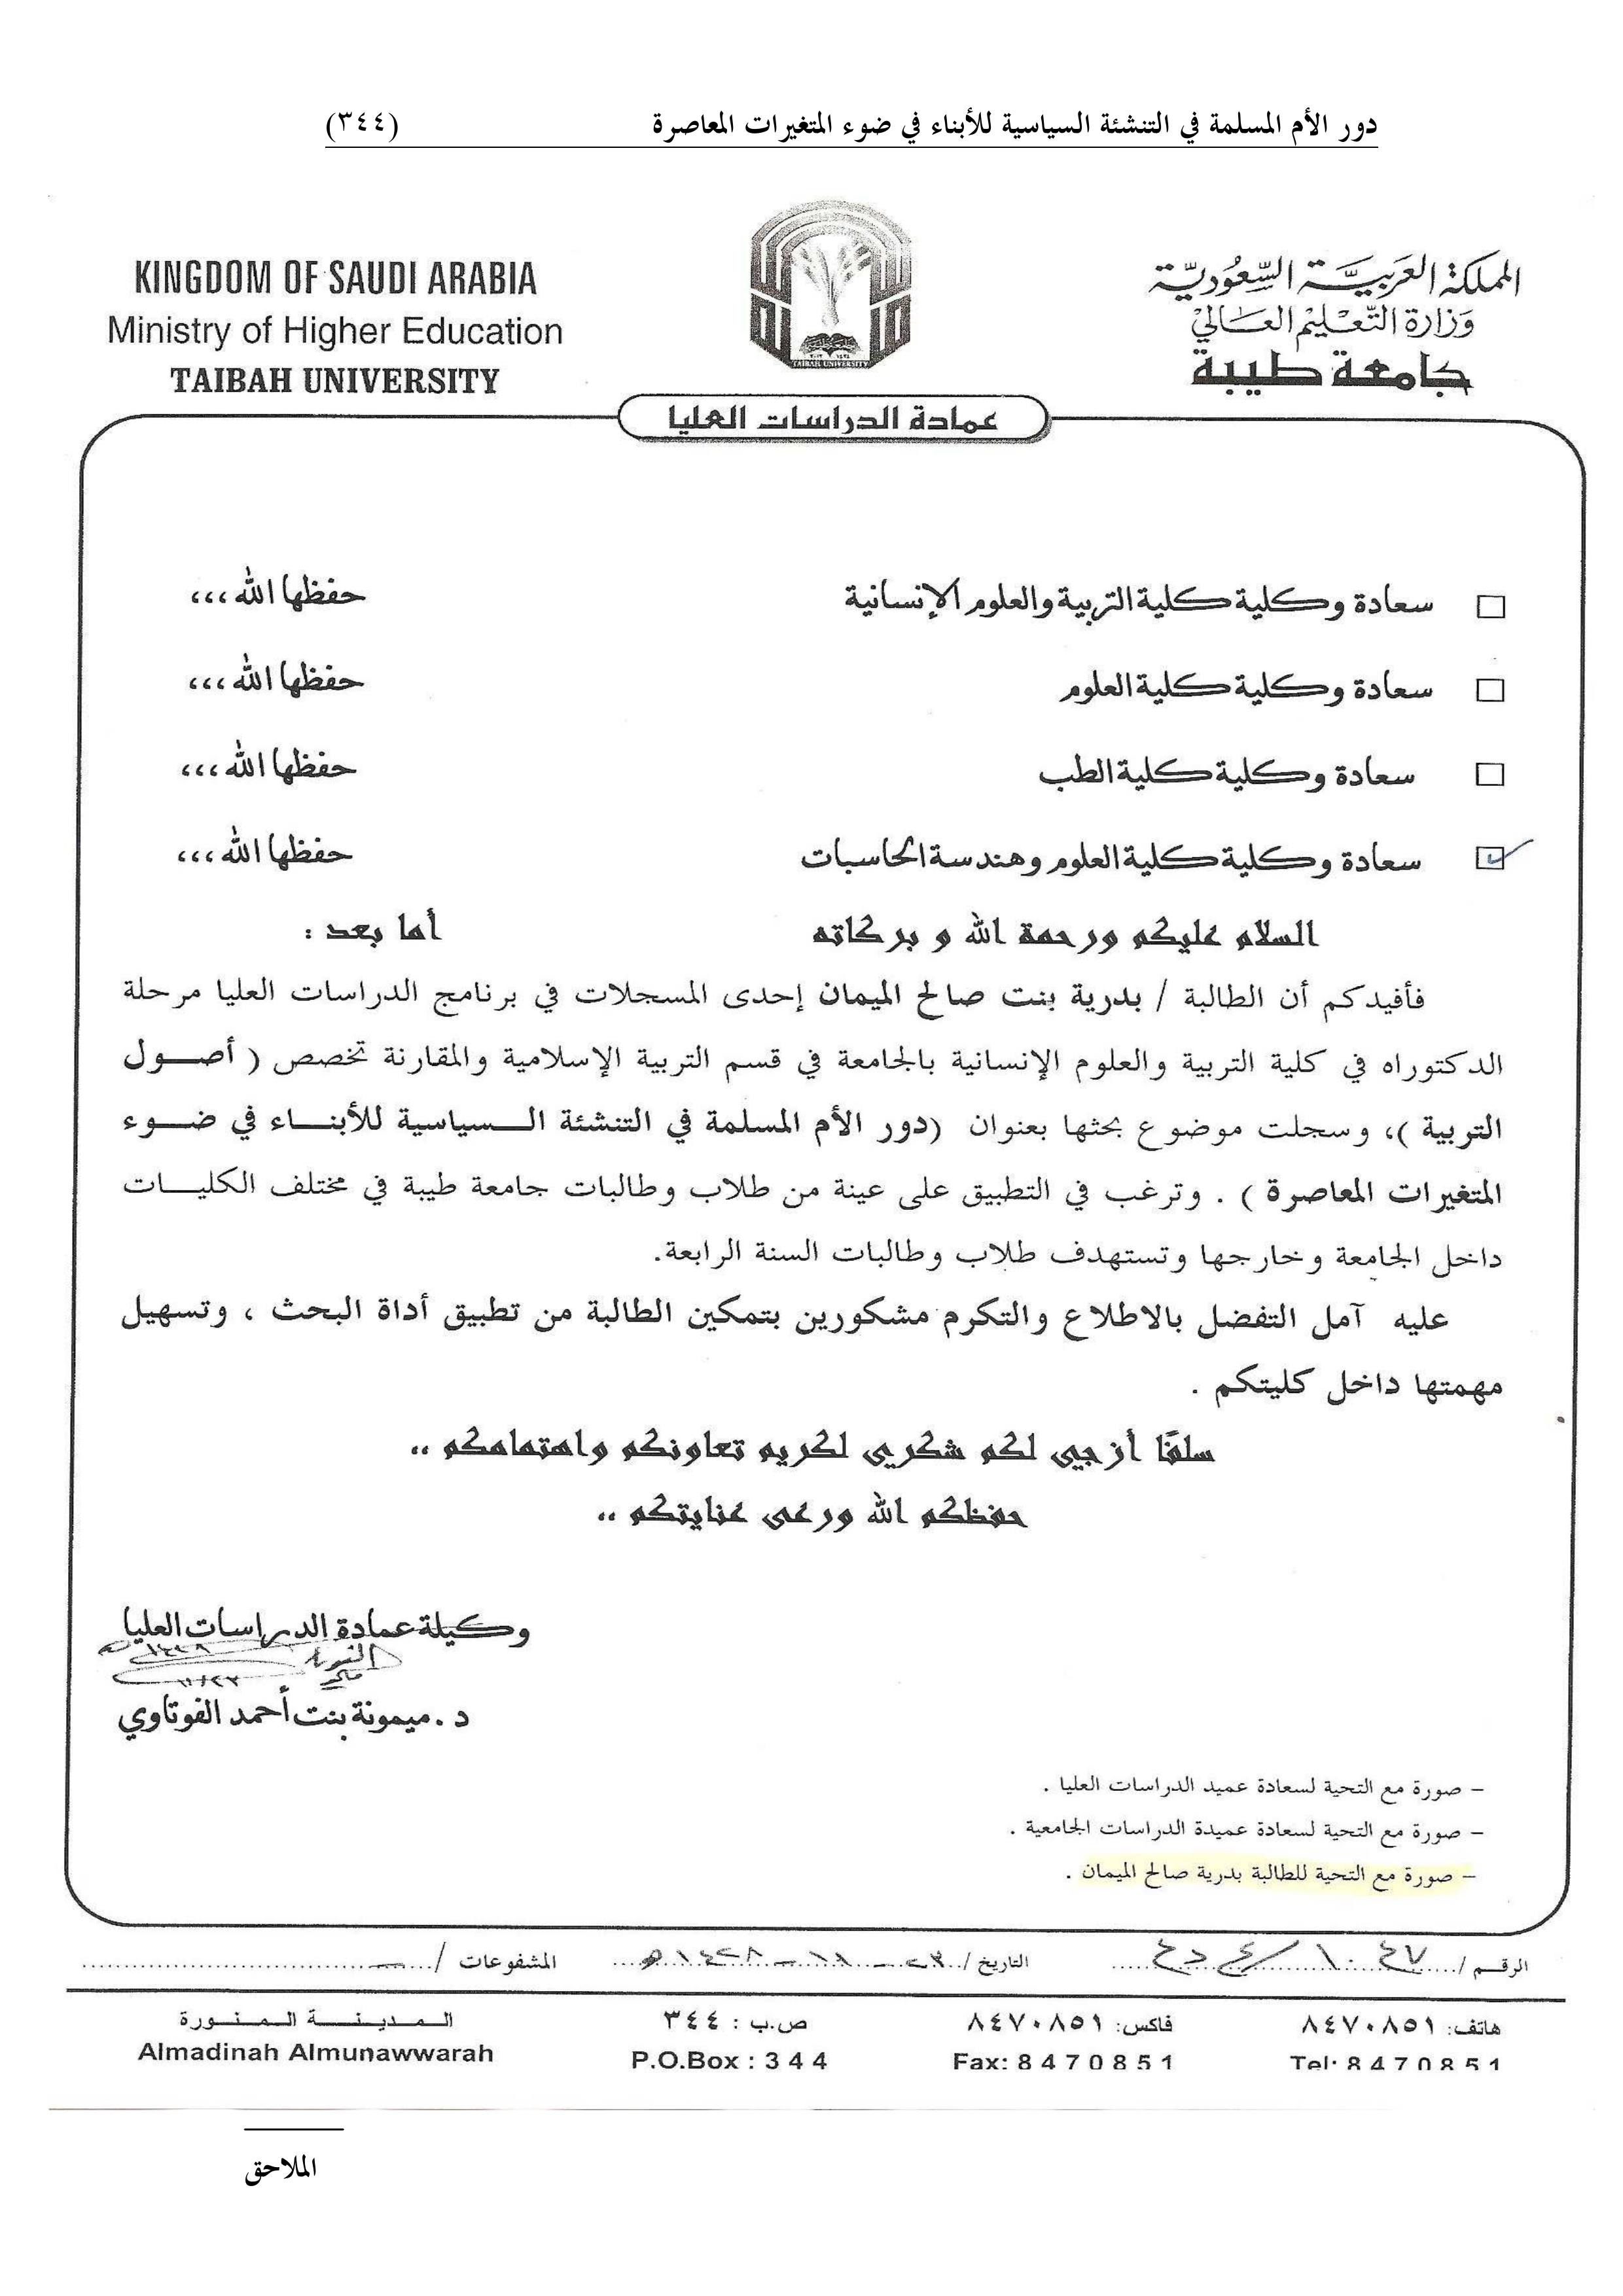 دور الأم المسلمة في التنشئة السياسية للأبناء في ضوء المتغيرات المعاصرة (٣٤٤)
KINGDOM OF SAUDI ARABIA
Ministry of Higher Education
TAIBAH UNIVERSITY
المملكة العربية السعودية
وزارة التعليم العالي
جامعة طيبة
TAIBAH UNIVERSITY
عمادة الدراسات العليا
سعادة وكلية كلية التربية والعلوم الإنسانية حفظها الله ،،،
سعادة وكلية كلية العلوم حفظها الله ،،،
سعادة وكلية كلية الطب حفظها الله ،،،
سعادة وكلية كلية العلوم وهندسة الحاسبات حفظها الله ،،،
السلام عليكم ورحمة الله و بركاته أما بعد :
فأفيدكم أن الطالبة / بدرية بنت صالح الميمان إحدى المسجلات في برنامج الدراسات العليا مرحلة
الدكتوراه في كلية التربية والعلوم الإنسانية بالجامعة في قسم التربية الإسلامية والمقارنة تخصص ( أصول
التربية )، وسجلت موضوع بحثها بعنوان (دور الأم المسلمة في التنشئة السياسية للأبناء في ضوء
المتغيرات المعاصرة ) . وترغب في التطبيق على عينة من طلاب وطالبات جامعة طيبة في مختلف الكليات
داخل الجامعة وخارجها وتستهدف طلاب وطالبات السنة الرابعة.
عليه آمل التفضل بالاطلاع والتكرم مشكورين بتمكين الطالبة من تطبيق أداة البحث ، وتسهيل
مهمتها داخل كليتكم .
سلفًا أزجي لكم شكري لكريم تعاونكم واهتمامكم ،،
حفظكم الله ورعى عنايتكم ،،
وكيلة عمادة الدراسات العليا
د . ميمونة بنت أحمد الفوتاوي
– صورة مع التحية لسعادة عميد الدراسات العليا .
– صورة مع التحية لسعادة عميدة الدراسات الجامعية .
– صورة مع التحية للطالبة بدرية صالح الميمان .
الرقم / ١٠٤٧ / التاريخ / ٢٣ – ١١ – ١٤٢٨هـ المشفوعات /
هاتف: ٨٤٧٠٨٥١ فاكس: ٨٤٧٠٨٥١ ص.ب : ٣٤٤ المدينة المنورة
Almadinah Almunawwarah P.O.Box : 3 4 4 Fax: 8 4 7 0 8 5 1 Tel: 8 4 7 0 8 5 1
الملاحق